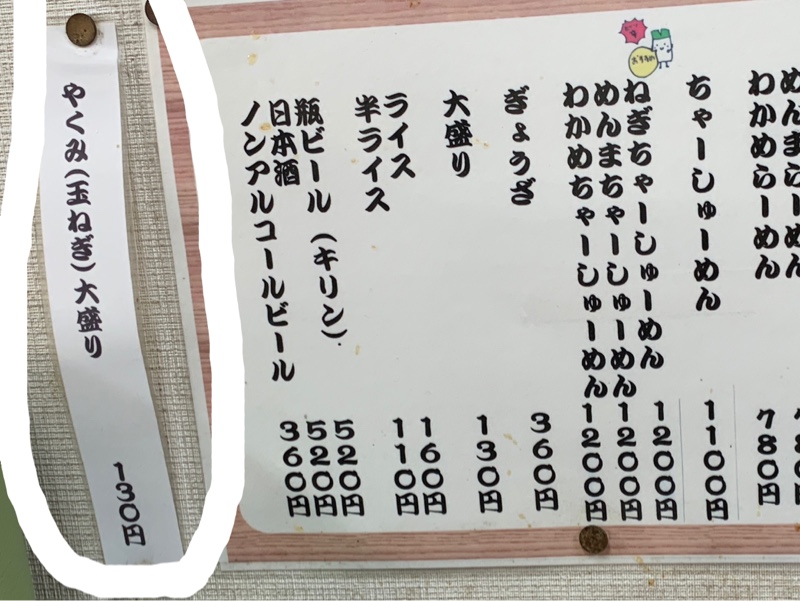 めんまらーめん
わかめらーめん 780円
ちゃーしゅーめん 1100円
おすすめ
ねぎちゃーしゅーめん 1200円
めんまちゃーしゅーめん 1200円
わかめちゃーしゅーめん 1200円
ぎょうざ 360円
大盛り 130円
ライス 160円
半ライス 110円
瓶ビール(キリン) 520円
日本酒 520円
ノンアルコールビール 360円
やくみ(玉ねぎ)大盛り 130円